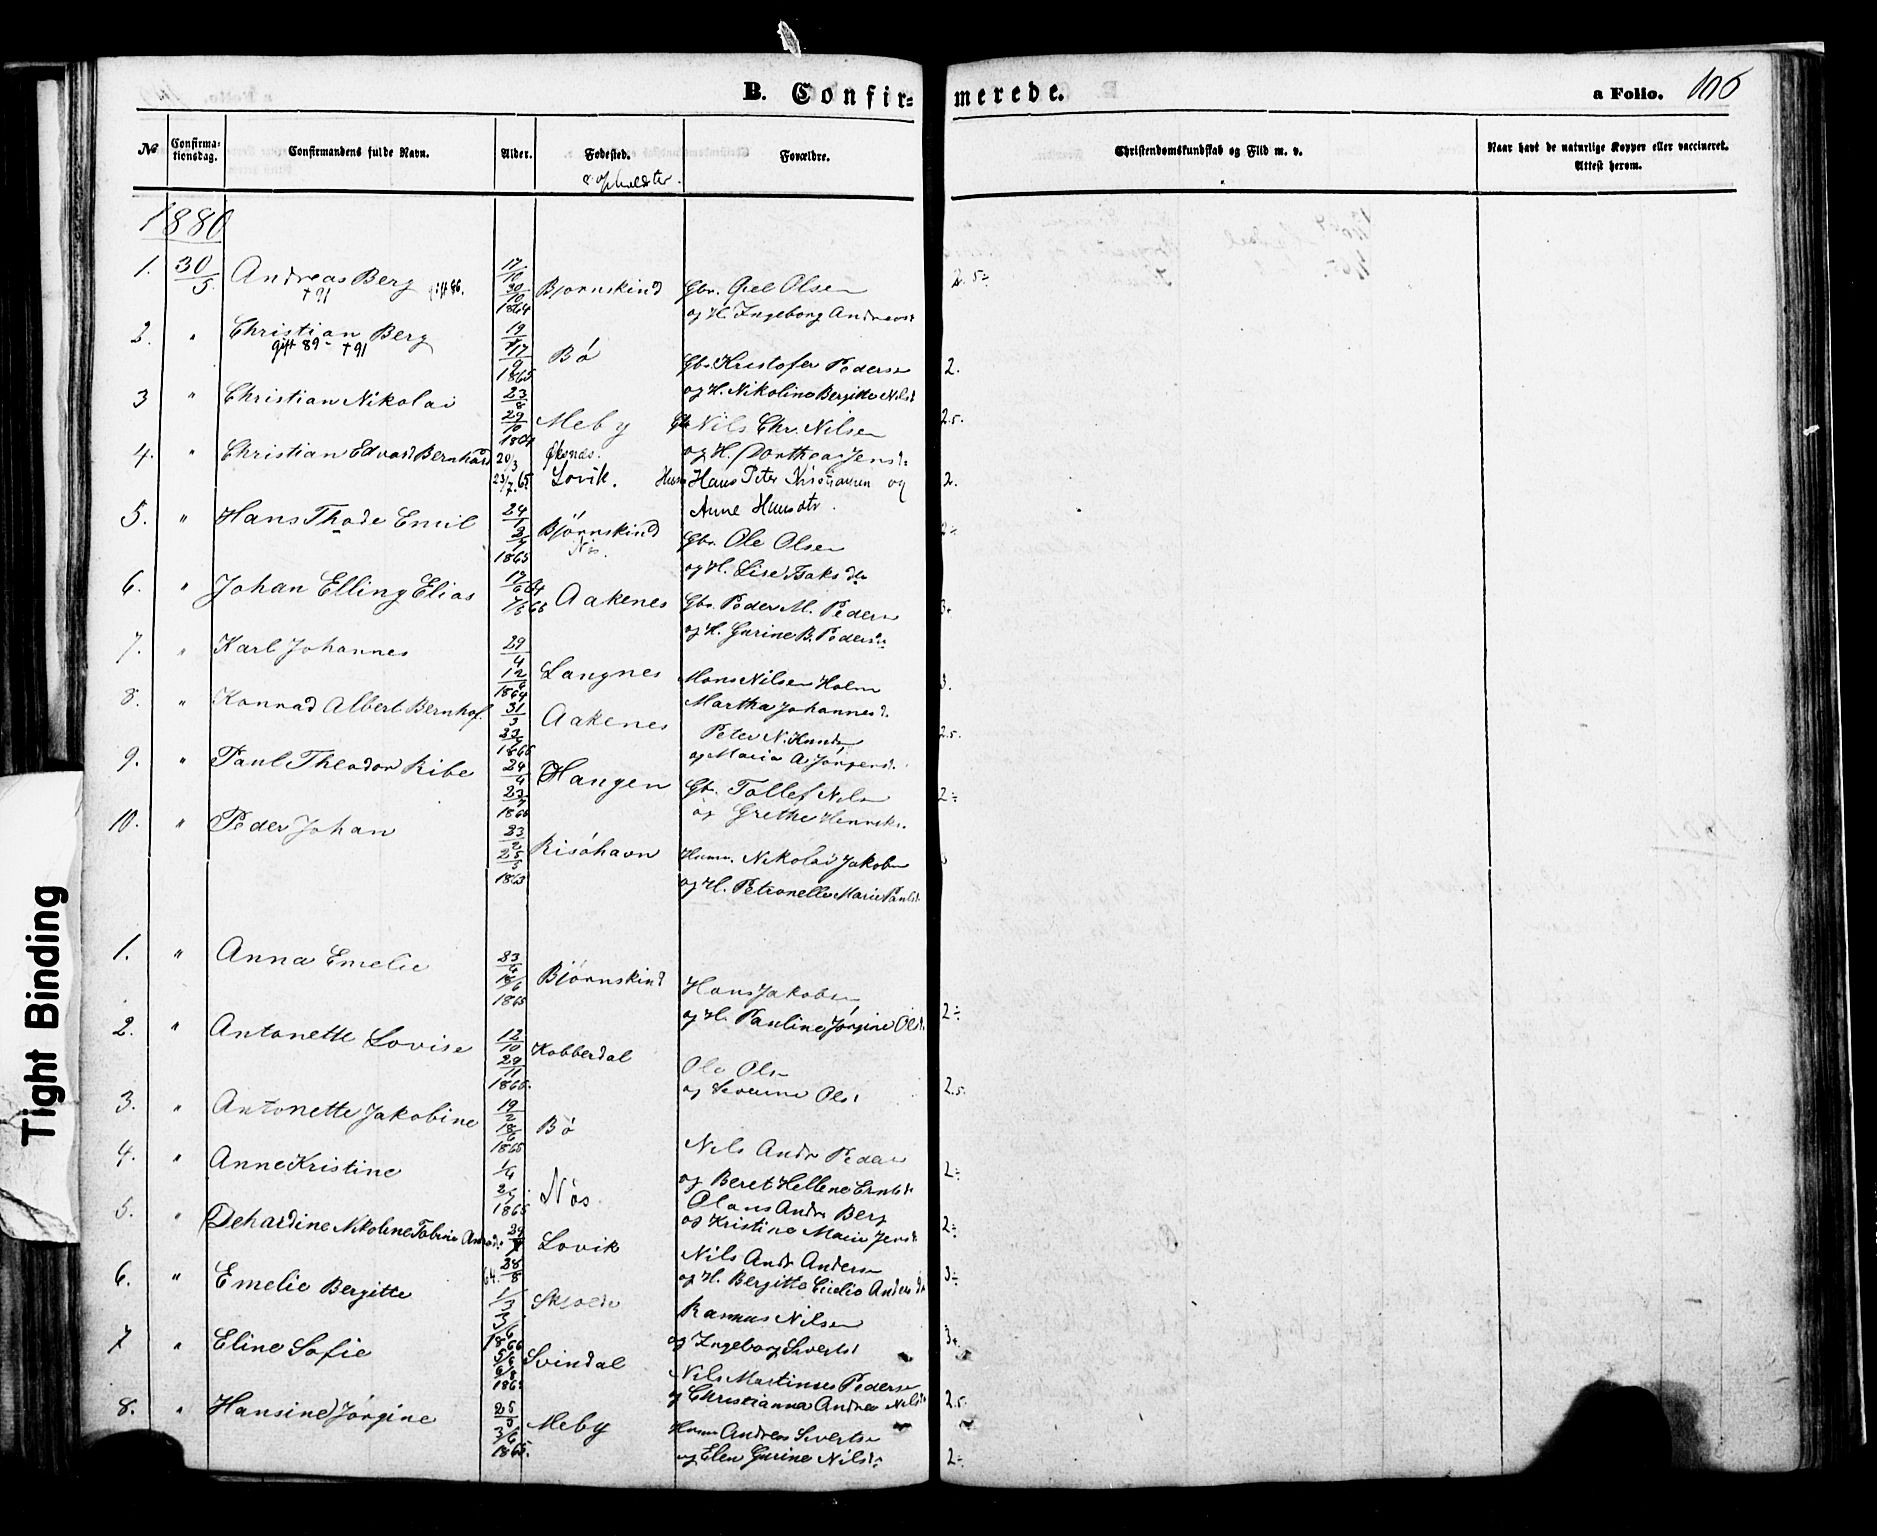 B. Confir-
merede.
a Folio. 106
No
Confirma-tionsdag.
Confirmandens fulde Navn.
Alder.
Fødested.
Forældre.
Christendomskundskab og Flid m. v.
Naar havt de naturlige Kopper eller vaccineret. Attest herom.
1880
1. 30/5 Andreas Berg gift 86. 17/10 Bjørnskind Gbr. Olsen 2.5÷
†91 30/10 1864 og H. Ingeborg Andreasd
2. " Christian Berg 19/ Bø Gbr. Kristofer Peders 2.
gift 89 - †91 17/9 1865 og H. Nikoline Bergitte Nilsd
3 " Christian Nikolai 23/8 Meby Nils Chr. Nilsen 2.5.
29/10 1864 og H. Dorthea Jensd.
4. " Christian Edvard Bernhard 20/3 Øksnes.
23/7.65 Lovik. Husm Hans Peter Kristiansen og 2.
Anne Hansdtr.
5. " Hans Thode Emil 24/1 Bjørnskind Gbr. Ole Olsen 2÷
2/7 1865 og H. Lise Isaksd
6. " Johan Elling Elias 17/6 64 Aakenes Gbr. Peder M. Peders 3+
7/5 65 og H. Gurine B. Peders
7. " Karl Johannes 29/4 Langnes Mons Nilsen Holm 3.
12/6 1864 Martha Johannesd.
8. " Konrad Albert Bernhof. 31/3 Aakenes Peter N. 2.5.
1865 og Maria A. Jørgensd.
9. " Paul Theodor Ribe 24/4 Haugen Gbr. Tollef Nils 2÷
23/7 1865 og Grethe
10. " Peder Johan 23/2 Risøhavn Husm. Nikolai Jakobs
25/5 1863 og H. Petronelle Marie Paulsd.
1. " Anna Emelie 23/4 Bjørnskind Hans Jakobsen
18/6 1865 og H. Pauline Jørgine Olsd. 2÷
2. " Antonette Lovise 12/10 Kobberdal Ole Ols
29/11 1865. og Severine Olsd 2.5.
3. " Antonette Jakobine 19/2 Bø Nils Andr Peders
18/6 1865 og Beret Hellene 2÷
4. " Anne Kristine 1/4 Nøs. Olaus Andr Berg
2/7 1865 og Kristine Marie Jensd 2÷
5. " Dehardine Nikoline Tobine 29/ Lovik Nils Andr Anders
64. 28/8 og H. Bergitte Andersd 3÷
6. " Emelie Bergitte 1/3 Rasmus Nilsen
3/6 1866 og Ingeborg Sivertsd 3+
7 " Eline Sofie 5/6 Svindal Nils Martinus Peders
og Christianna Andrea Nilsd 2.5.
8. " Hansine Jørgine 25/3 Meby Husm Andreas Siverts
3/6 1865. og Elen Gurine Nilsd 2÷
Tight Binding